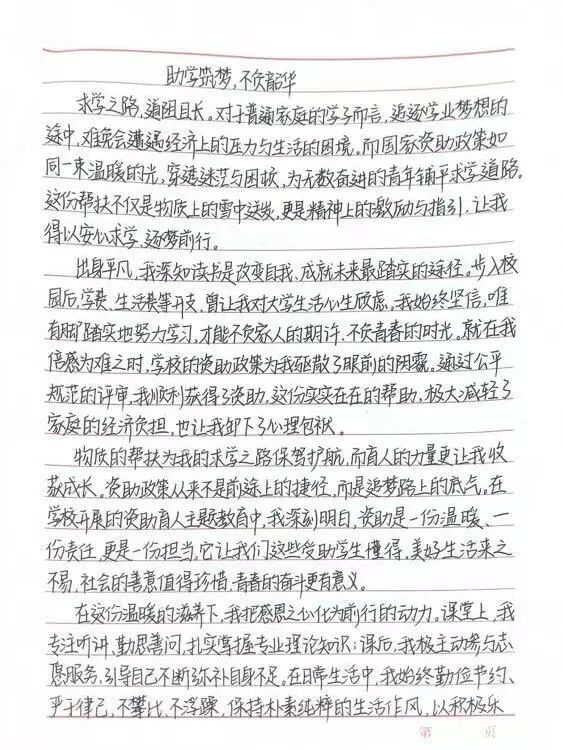 助学筑梦,不负韶华
求学之路,道阻且长。对于普通家庭的学子而言,追逐学业梦想的
途中,难免会遭遇经济上的压力与生活的困境。而国家资助政策如
同一束温暖的光,穿透迷茫与困顿,为无数奋进的青年铺平求学道路。
这份帮扶不仅是物质上的雪中送炭,更是精神上的激励与指引,让我
得以安心求学、逐梦前行。
出身平凡,我深知读书是改变自我、成就未来最踏实的途径。步入校
园后,学费、生活费等开支,曾让我对大学生活心生顾虑。我始终坚信,唯
有脚踏实地努力学习,才能不负家人的期许、不负青春的时光。就在我
倍感为难之时,学校的资助政策为我驱散了眼前的阴霾。通过公平
规范的评审,我顺利获得了资助,这份实实在在的帮助,极大减轻了
家庭的经济负担,也让我卸下了心理包袱。
物质的帮扶为我的求学之路保驾护航,而育人的力量更让我收
获成长。资助政策从来不是前途上的捷径,而是追梦路上的底气。在
学校开展的资助育人主题教育中,我深刻明白,资助是一份温暖、一
份责任,更是一份担当。它让我们这些受助学生懂得,美好生活来之
不易,社会的善意值得珍惜,青春的奋斗更有意义。
在这份温暖的滋养下,我把感恩之心化为前行的动力。课堂上,我
专注听讲、勤思善问,扎实掌握专业理论知识;课后,我极主动参与志
愿服务,引导自己不断弥补自身不足。在日常生活中,我始终勤俭节约、
严于律己,不攀比、不浮躁,保持朴素纯粹的生活作风,以积极乐
第 页